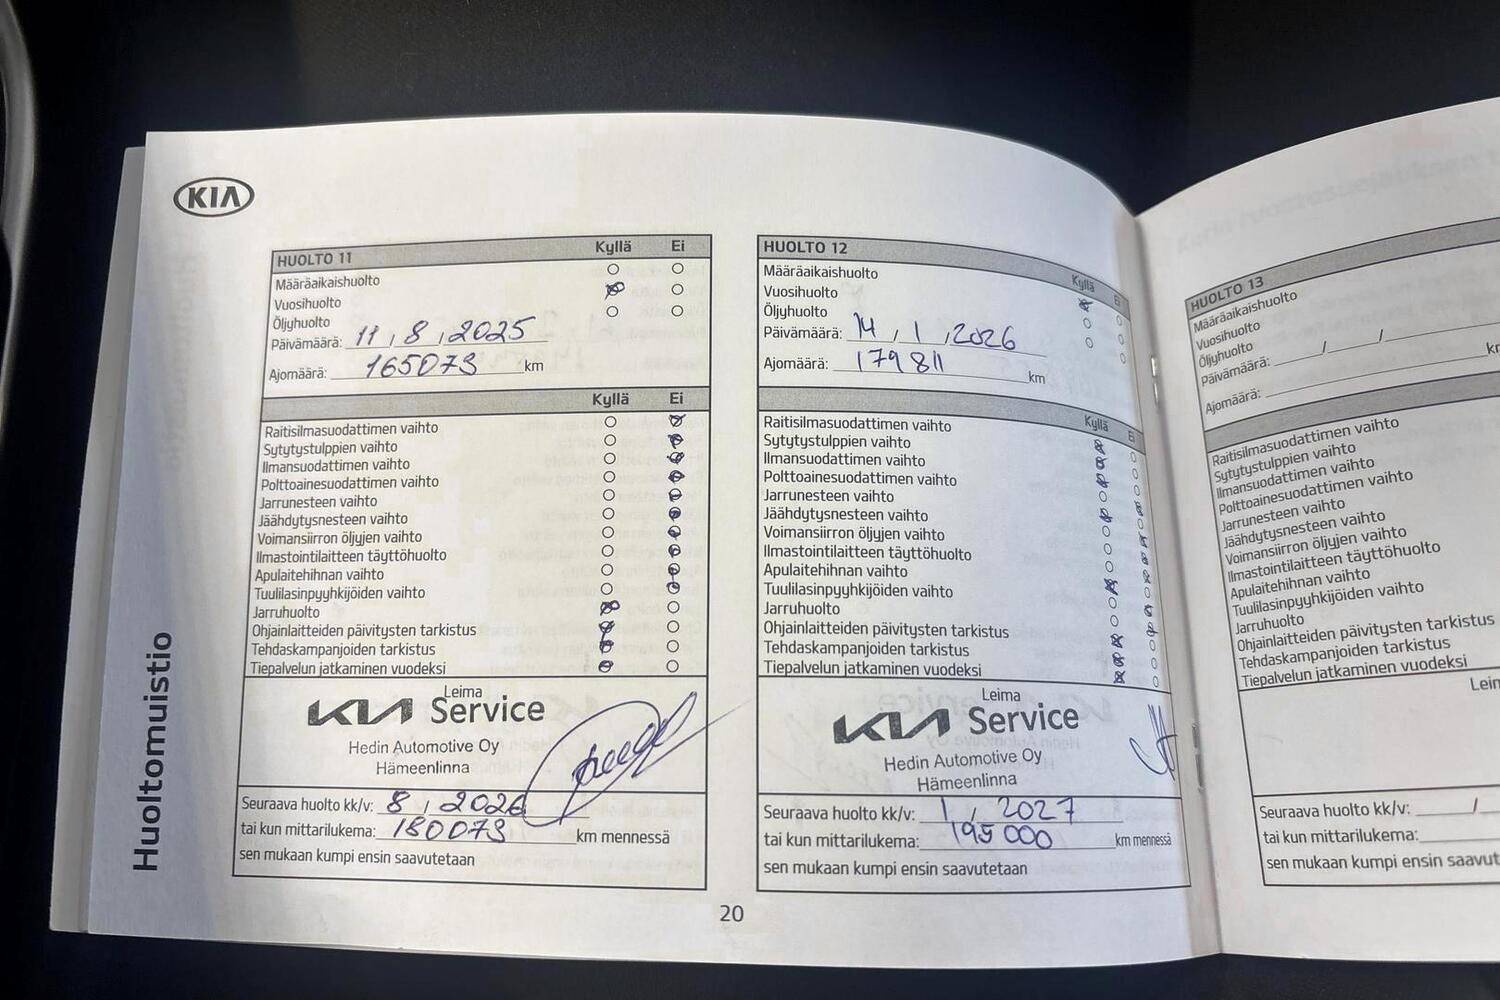 KIA
HUOLTO 11 Kyllä Ei
Määräaikaishuolto
Vuosihuolto
Öljyhuolto
Päivämäärä: 11 / 8 / 2025
Ajomäärä: 165073 km
Kyllä Ei
Raitisilmasuodattimen vaihto
Sytytystulppien vaihto
Ilmansuodattimen vaihto
Polttoainesuodattimen vaihto
Jarrunesteen vaihto
Jäähdytysnesteen vaihto
Voimansiirron öljyjen vaihto
Ilmastointilaitteen täyttöhuolto
Apulaitehihnan vaihto
Tuulilasinpyyhkijöiden vaihto
Jarruhuolto
Ohjainlaitteiden päivitysten tarkistus
Tehdaskampanjoiden tarkistus
Tiepalvelun jatkaminen vuodeksi
Leima
KIA Service
Hedin Automotive Oy
Hämeenlinna
Seuraava huolto kk/v: 8 / 2026
tai kun mittarilukema: 180073 km mennessä
sen mukaan kumpi ensin saavutetaan
HUOLTO 12
Kyllä Ei
Määräaikaishuolto
Vuosihuolto
Öljyhuolto
Päivämäärä: 14 / 1 / 2026
Ajomäärä: 179811 km
Kyllä Ei
Raitisilmasuodattimen vaihto
Sytytystulppien vaihto
Ilmansuodattimen vaihto
Polttoainesuodattimen vaihto
Jarrunesteen vaihto
Jäähdytysnesteen vaihto
Voimansiirron öljyjen vaihto
Ilmastointilaitteen täyttöhuolto
Apulaitehihnan vaihto
Tuulilasinpyyhkijöiden vaihto
Jarruhuolto
Ohjainlaitteiden päivitysten tarkistus
Tehdaskampanjoiden tarkistus
Tiepalvelun jatkaminen vuodeksi
Leima
KIA Service
Hedin Automotive Oy
Hämeenlinna
Seuraava huolto kk/v: 1 / 2027
tai kun mittarilukema: 195000 km mennessä
sen mukaan kumpi ensin saavutetaan
Huoltomuistio
20
HUOLTO 13
Määräaikaishuolto
Vuosihuolto
Öljyhuolto
Päivämäärä: / /
Ajomäärä: km
Raitisilmasuodattimen vaihto
Sytytystulppien vaihto
Ilmansuodattimen vaihto
Polttoainesuodattimen vaihto
Jarrunesteen vaihto
Jäähdytysnesteen vaihto
Voimansiirron öljyjen vaihto
Ilmastointilaitteen täyttöhuolto
Apulaitehihnan vaihto
Tuulilasinpyyhkijöiden vaihto
Jarruhuolto
Ohjainlaitteiden päivitysten tarkistus
Tehdaskampanjoiden tarkistus
Tiepalvelun jatkaminen vuodeksi
Lein
Seuraava huolto kk/v: /
tai kun mittarilukema:
sen mukaan kumpi ensin saavut